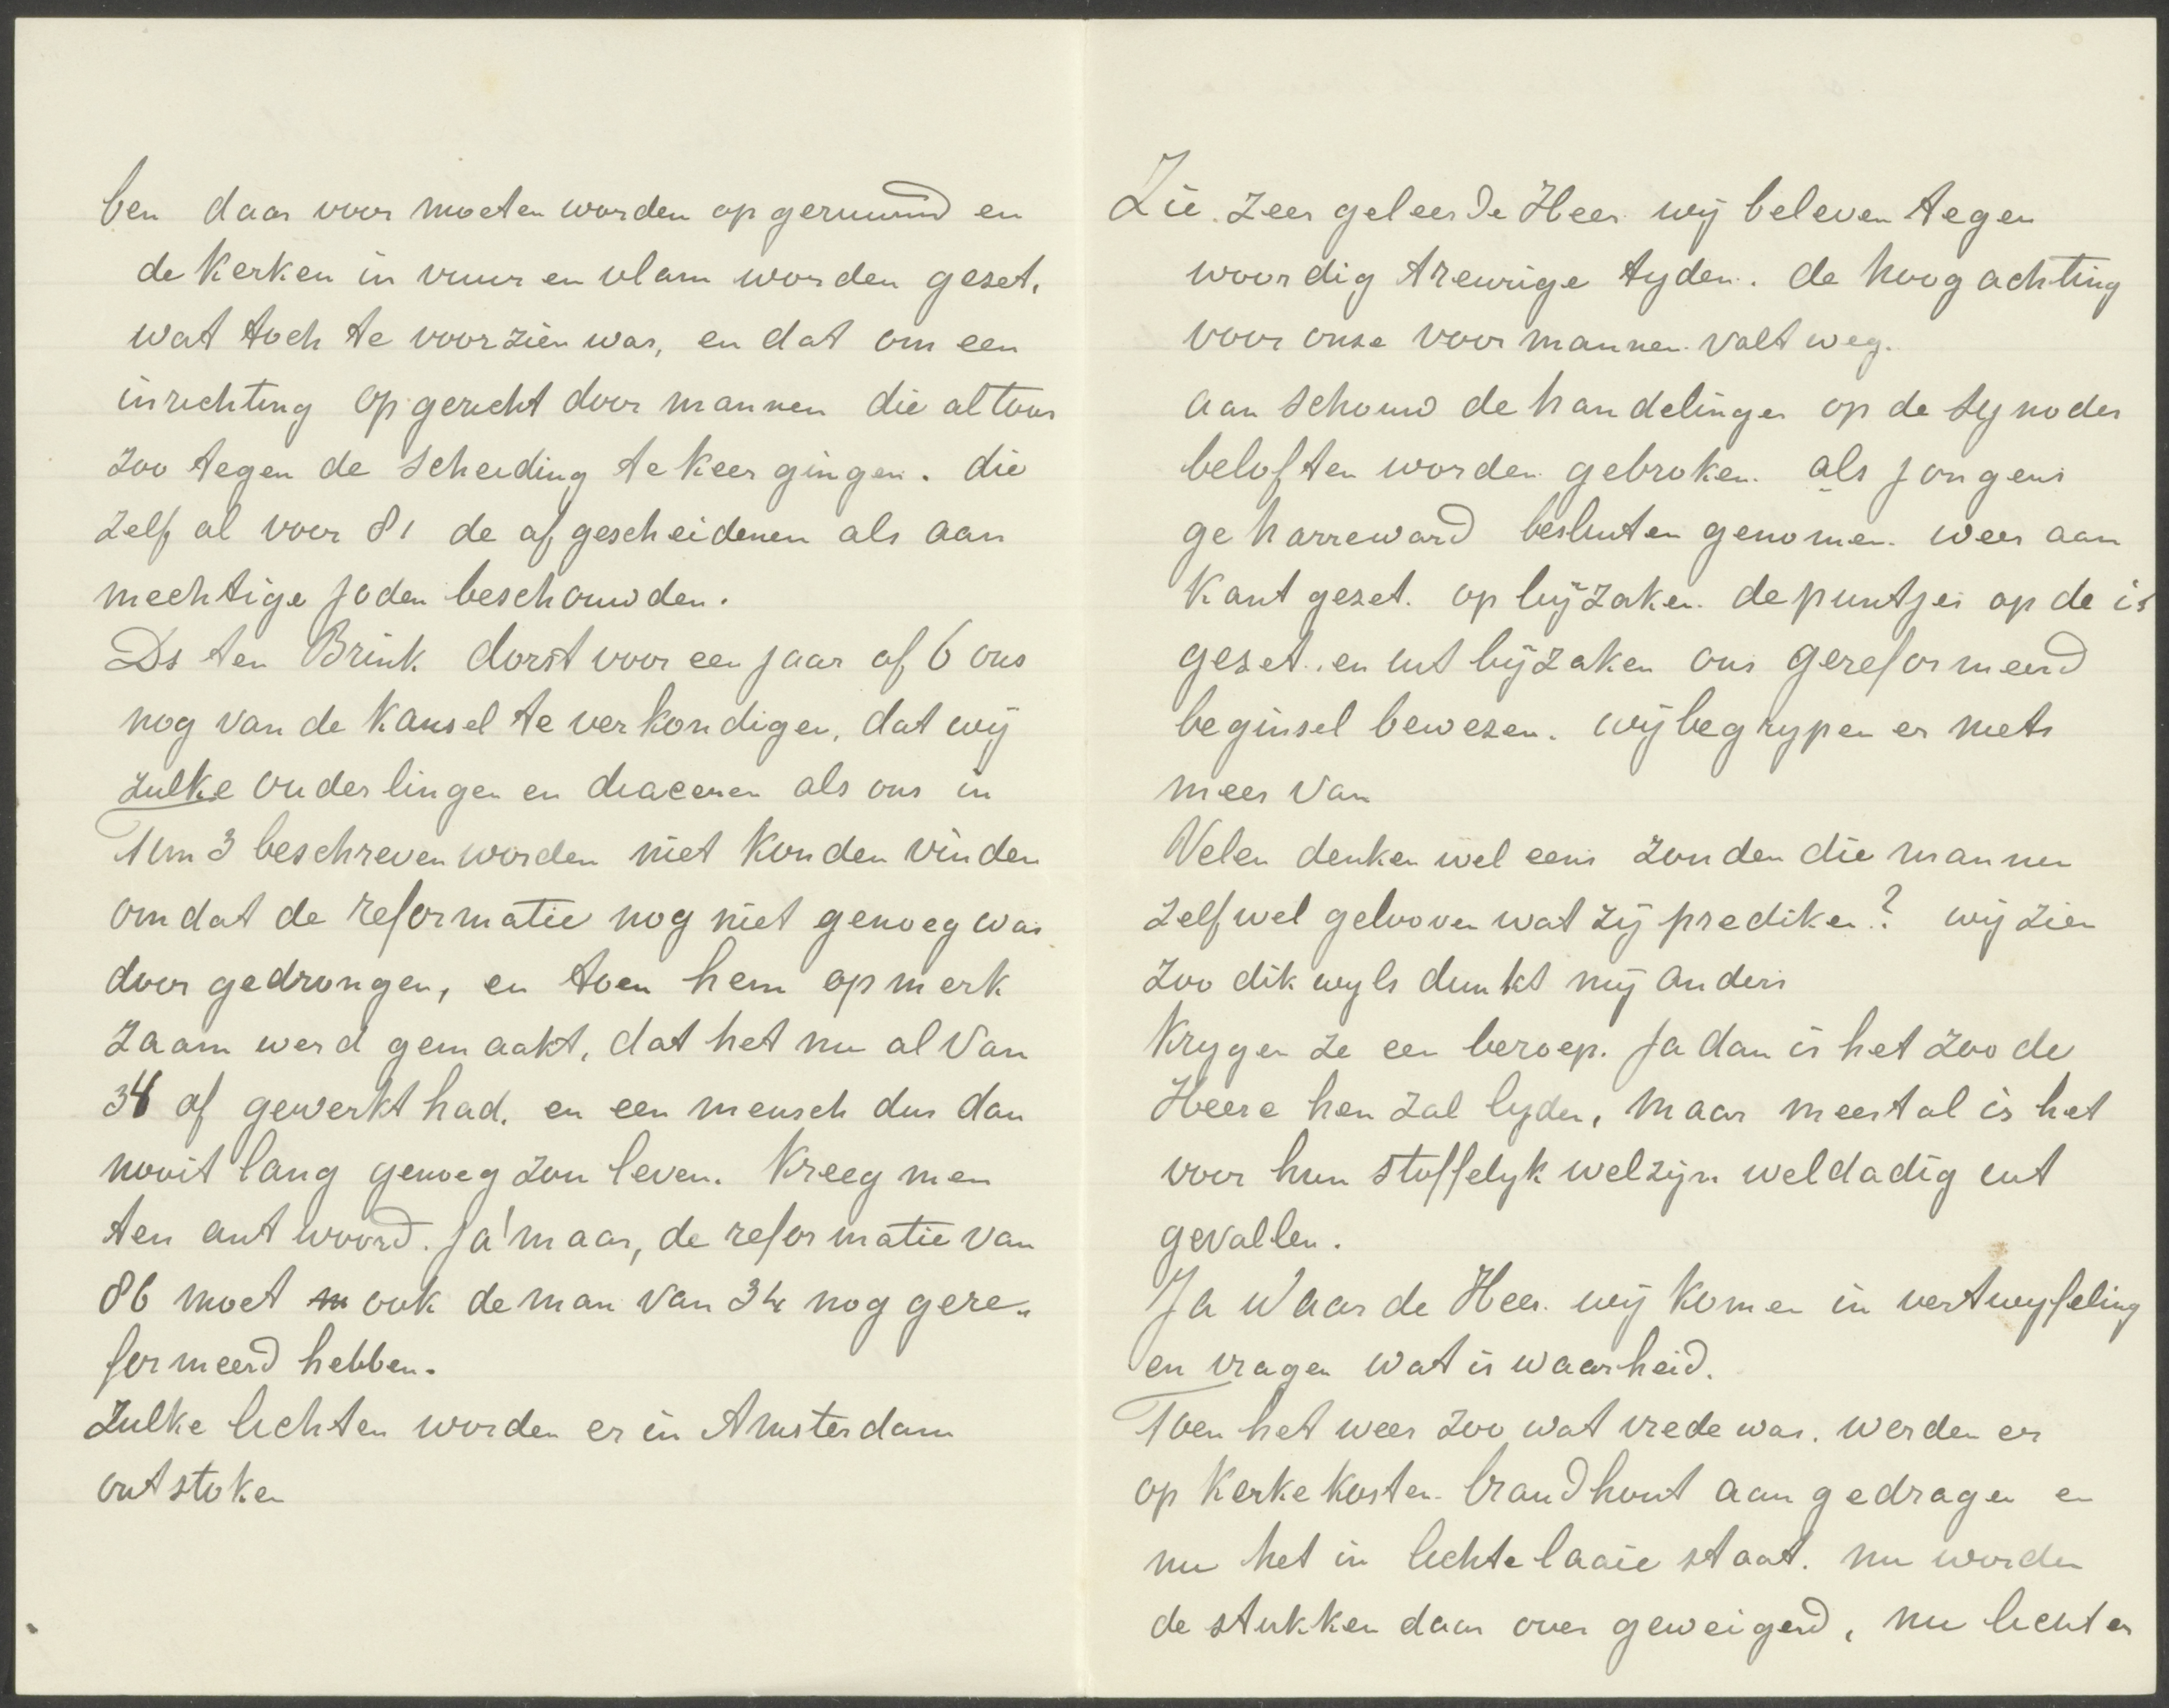 ben daar voor moeten worden opgeruimd en
de Kerken in vuur en vlam worden gezet,
wat toch te voorzien was, en dat om een
inrichting opgericht door mannen die altoos
zoo tegen de scheiding te keer gingen. die
zelf al voor 81 de afgescheidenen als aan
mechtige Joden beschouwden.
Ds ten Brink dorst voor een jaar of 6 ons
nog van de Kansel te verkondigen, dat wij
zulke ouderlingen en diacenen als ons in
Tim 3 beschreven worden niet Konden vinden
omdat de reformatie nog niet genoeg was
door gedrongen, en toen hem opmerk
zaam werd gemaakt, dat het nu al van
34 af gewerkt had. en een mensch dus dan
nooit lang genoeg zou leven. Kreeg men
ten antwoord. Ja! maar, de reformatie van
86 moet ook de man van 34 nog gere„
formeerd hebben.
Zulke lichten worden er in Amsterdam
ontstoken
Zie. Zeer geleerde Heer. wij beleven tegen
woordig treurige tyden. de hoogachting
voor onze voormannen valt weg.
aanschouw de handelingen op de synodes
beloften worden gebroken. als jongens
geharreward besluiten genomen. weer aan
Kant gezet. op bijzaken. de puntjes op de is
gezet. en uit bijzaken ons gereformeerd
beginsel bewezen. wij begrypen er niets
meer van
Velen denken wel eens zouden die mannen
zelf wel gelooven wat zij prediken? wij zien
zoo dikwyls dunkt mij anders
Krygen ze een beroep. Ja dan is het zoo de
Heere hen zal lyden, maar meestal is het
voor hun stoffelyk welzijn weldadig uit
gevallen.
Ja Waarde Heer. wij Komen in vertwyfeling
en vragen wat is waarheid.
Toen het weer zoo wat vrede was. werden er
op Kerkekosten brandhout aangedragen en
nu het in lichte laaie staat. nu worden
de stukken daar over geweigerd, nu lichten